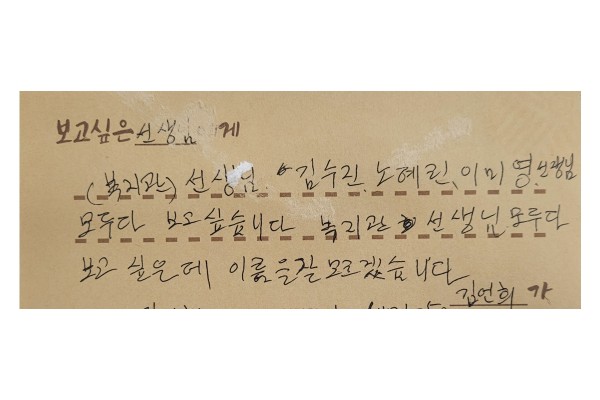 보고싶은 선생님에게
(복지관) 선생님. 김수진, 노혜린, 이미영 선생님
모두다 보고싶습니다 복지관 선생님 모두다
보고 싶은데 이름을잘모르겠습니다
김언희 가